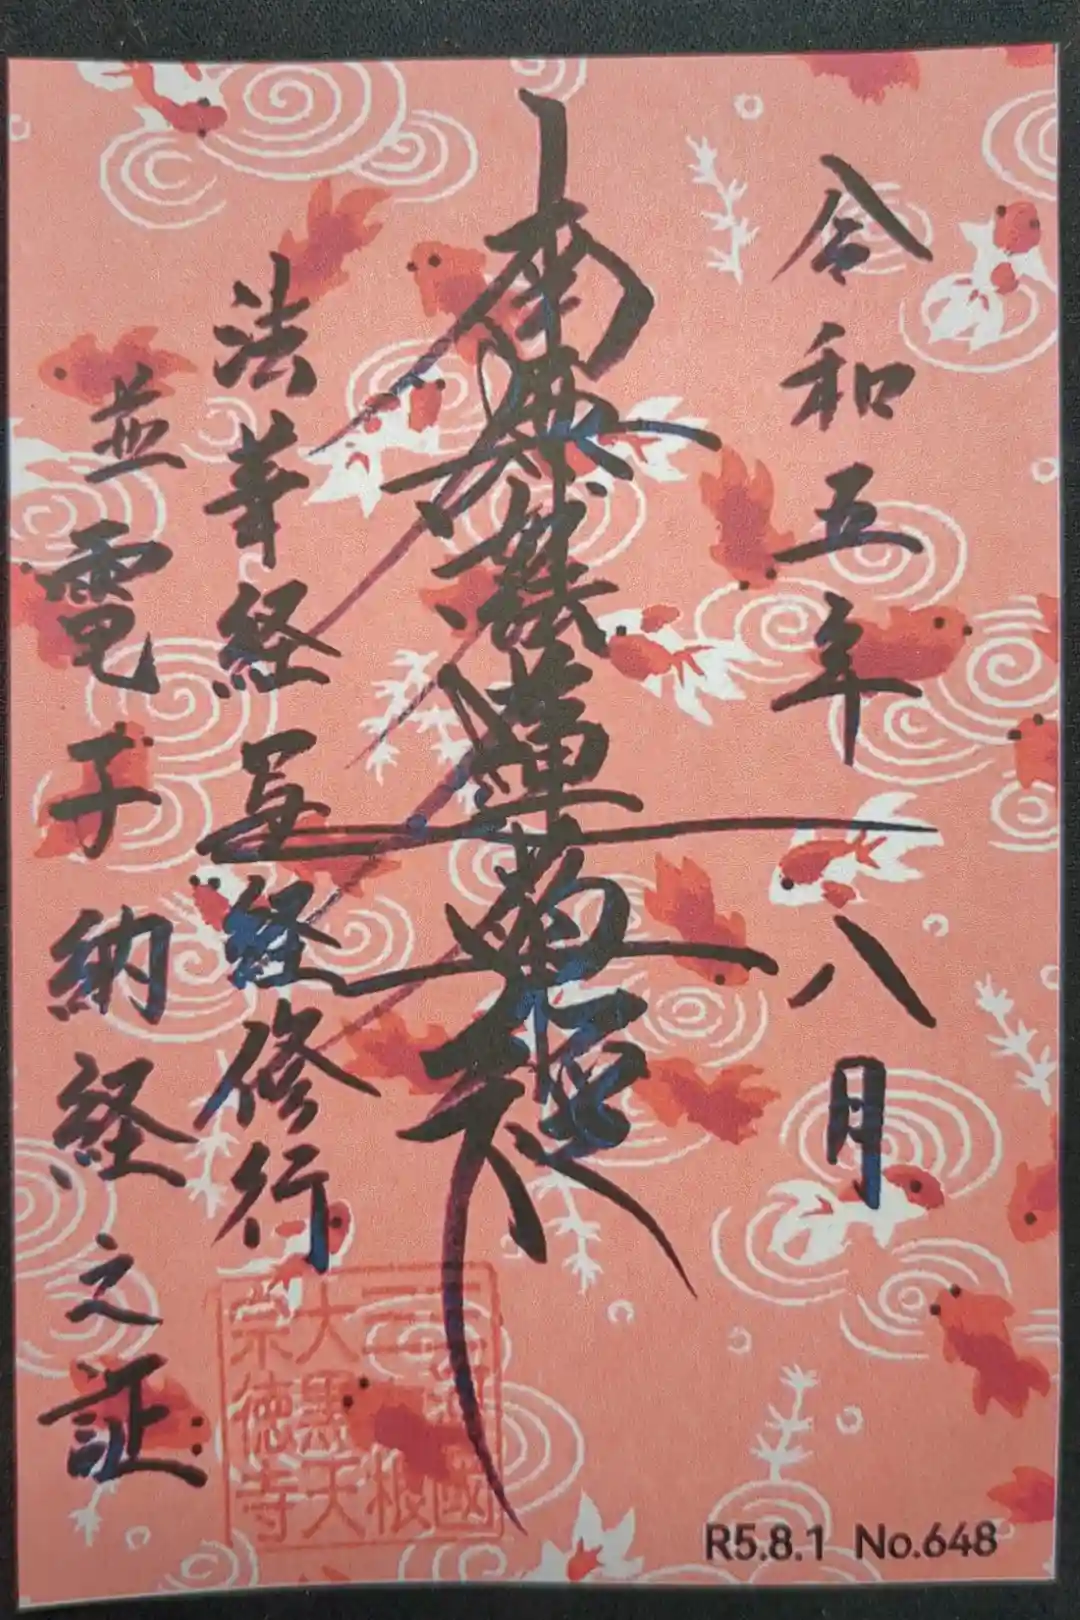 令和五年八月
南無妙法蓮華経
法華経写経修行
並電子納経之証
三河國
大黒天
宗徳寺
R5.8.1 No.648